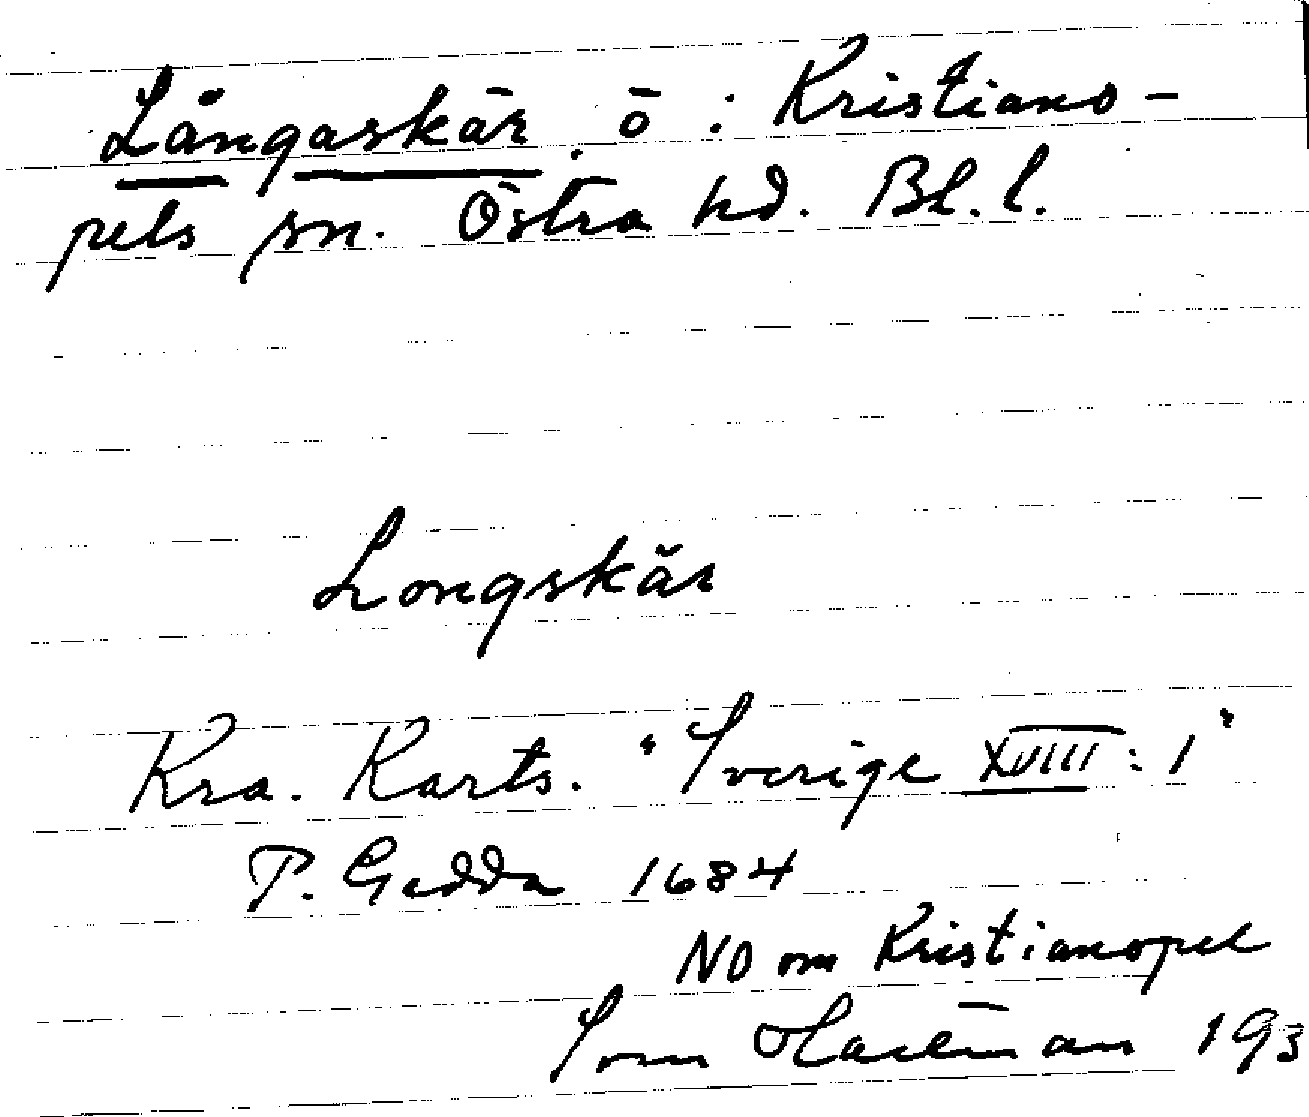 Långaskär. ö : Kristiano-
pels sn. Östra hd. Bl. l.
Longskär
Kra. Karts. "Sverige XVIII : 1"
P. Gedda 1684
NO om Kristianopel
193